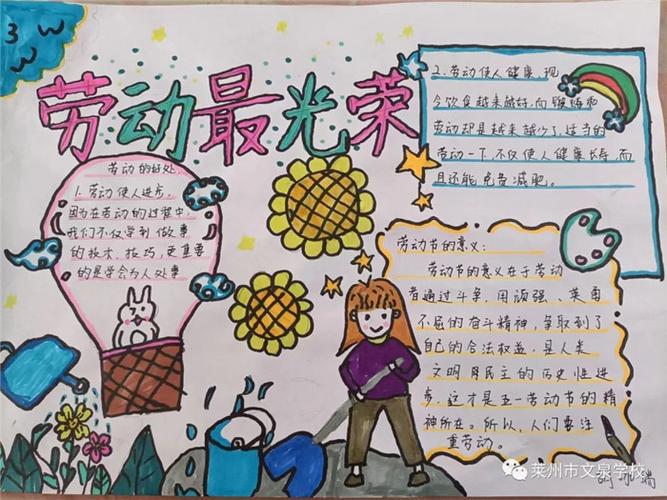 劳动最光荣
劳动的好处
1.劳动使人进步。
因为在劳动的过程中,
我们不仅学到做事
的技术、技巧,更重要
的是学会为人处事
2.劳动使人健康,现
今饮食越来越好,而锻炼和
劳动却是越来越少了,适当的
劳动一下,不仅使人健康长寿,而
且还能免费减肥。
劳动节的意义:
劳动节的意义在于劳动
者通过斗争,用顽强、英勇
不屈的奋斗精神,争取到了
自己的合法权益,是人类
文明民主的历史性进
步,这才是五一劳动节的精
神所在。所以,人们要注
重劳动。
莱州市文泉学校